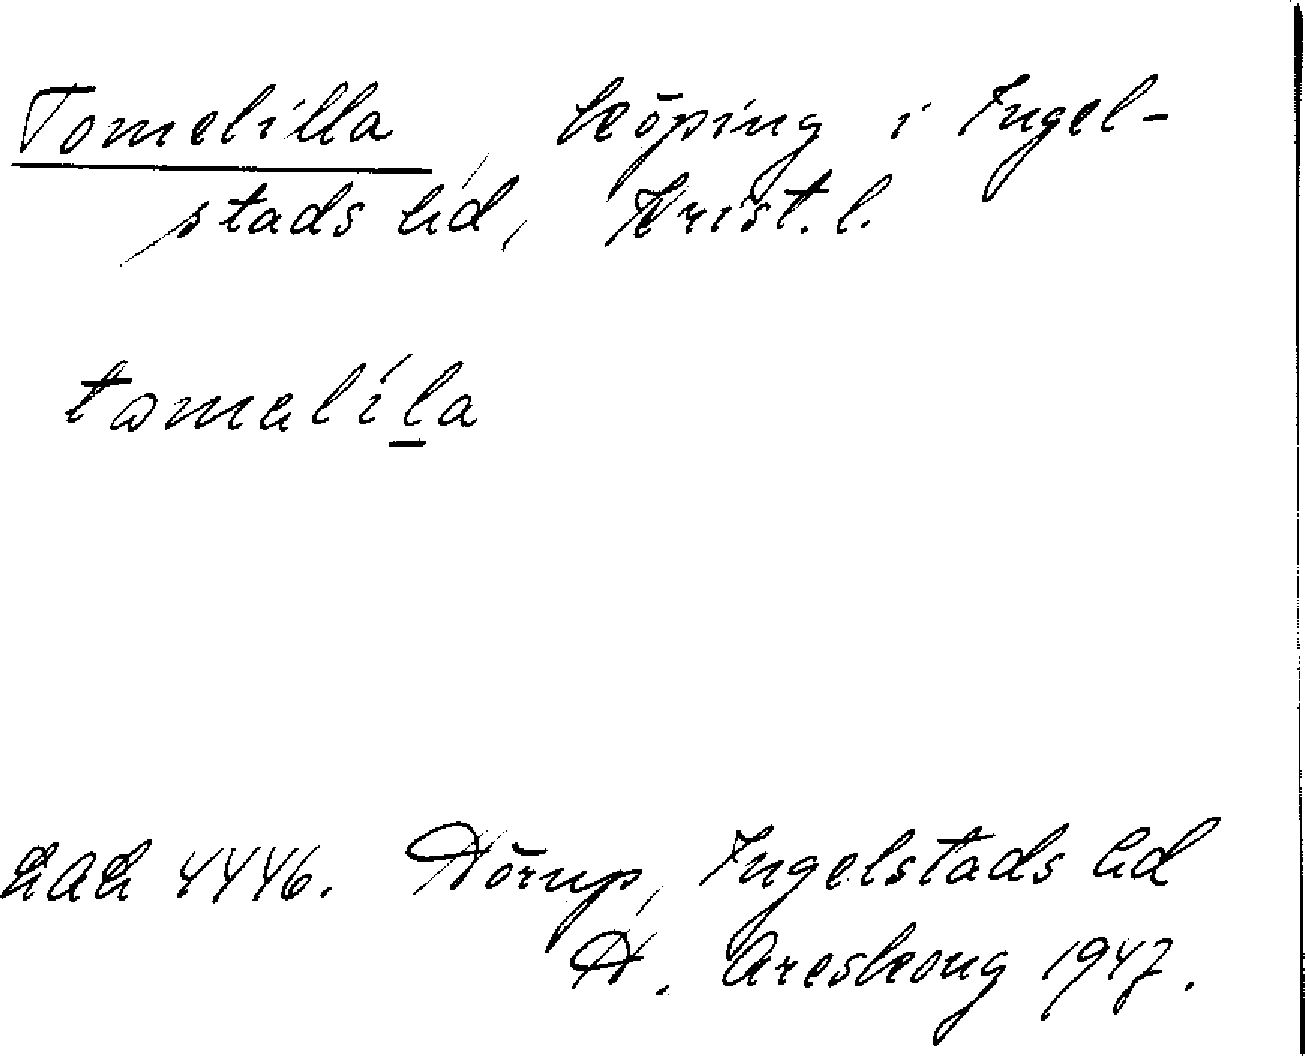 Tomelilla, köping i Ingel-
stads hd, Krist.l.
tomalíla
LAL 4446. Hörup, Ingelstads hd
H. Areskoug 1947.